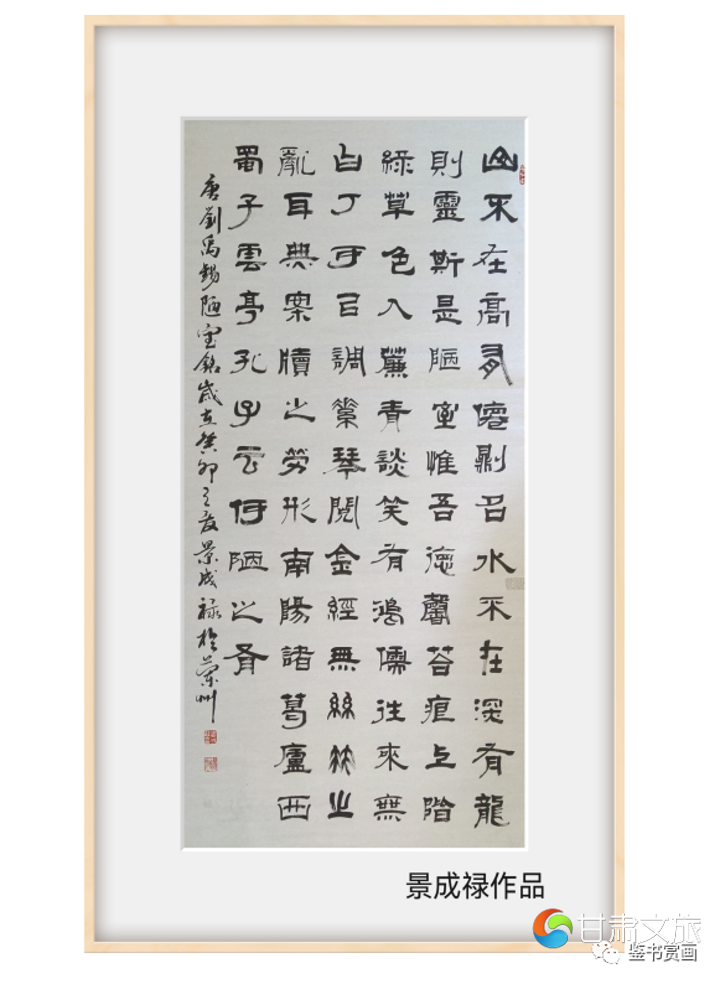 山不在高有僊則名水不在深有龍
則靈斯是陋室惟吾德馨苔痕上階
綠草色入簾青談笑有鴻儒往來無
白丁可以調素琴閱金經無絲竹之
亂耳無案牘之勞形南陽諸葛廬西
蜀子雲亭孔子云何陋之有
唐劉禹錫陋室銘歲在癸卯之夏景成祿於蘭州
景成禄作品
甘肃文旅
鉴书赏画